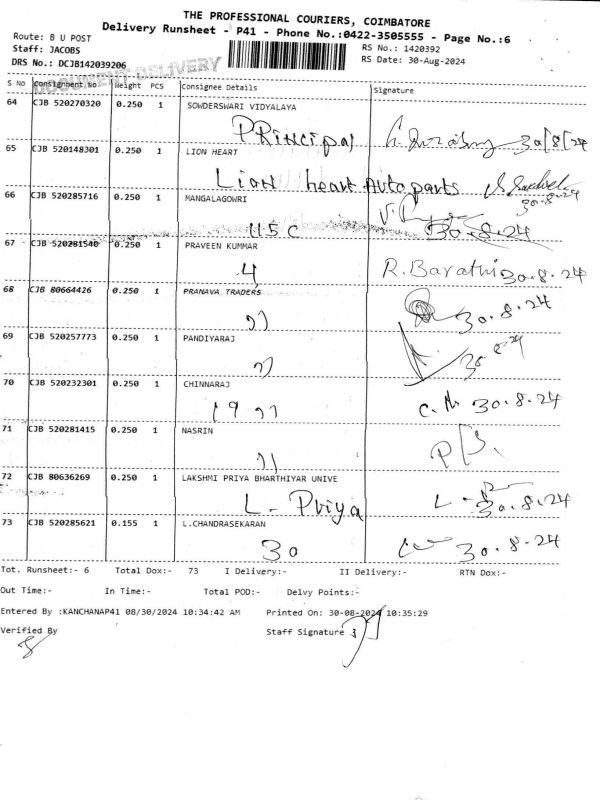 THE PROFESSIONAL COURIERS, COIMBATORE
Delivery Runsheet - P41 - Phone No.:0422-3505555 - Page No.:6
Route: B U POST
RS No.: 1420392
Staff: JACOBS
RS Date: 30-Aug-2024
DRS No.: DCJB142039206
DOCUMENT DELIVERY
S No Consignment No Weight PCS Consignee Details Signature
64 CJB 520270320 0.250 1 SOWDERSWARI VIDYALAYA
Principal 30/8/24
65 CJB 520148301 0.250 1 LION HEART
Lion heart Auto parts 30.8.24
66 CJB 520285716 0.250 1 MANGALAGOWRI
115C 30.8.24
67 CJB 520281540 0.250 1 PRAVEEN KUMMAR
4 R. Barathi 30.8.24
68 CJB 80664426 0.250 1 PRANAVA TRADERS
30.8.24
69 CJB 520257773 0.250 1 PANDIYARAJ
30.8.24
70 CJB 520232301 0.250 1 CHINNARAJ
30.8.24
71 CJB 520281415 0.250 1 NASRIN
72 CJB 80636269 0.250 1 LAKSHMI PRIYA BHARTHIYAR UNIVE
L- Priya 30.8.24
73 CJB 520285621 0.155 1 L.CHANDRASEKARAN
30 30.8.24
Tot. Runsheet:- 6 Total Dox:- 73 I Delivery:- II Delivery:- RTN Dox:-
Out Time:- In Time:- Total POD:- Delvy Points:-
Entered By :KANCHANAP41 08/30/2024 10:34:42 AM Printed On: 30-08-2024 10:35:29
Verified By Staff Signature :